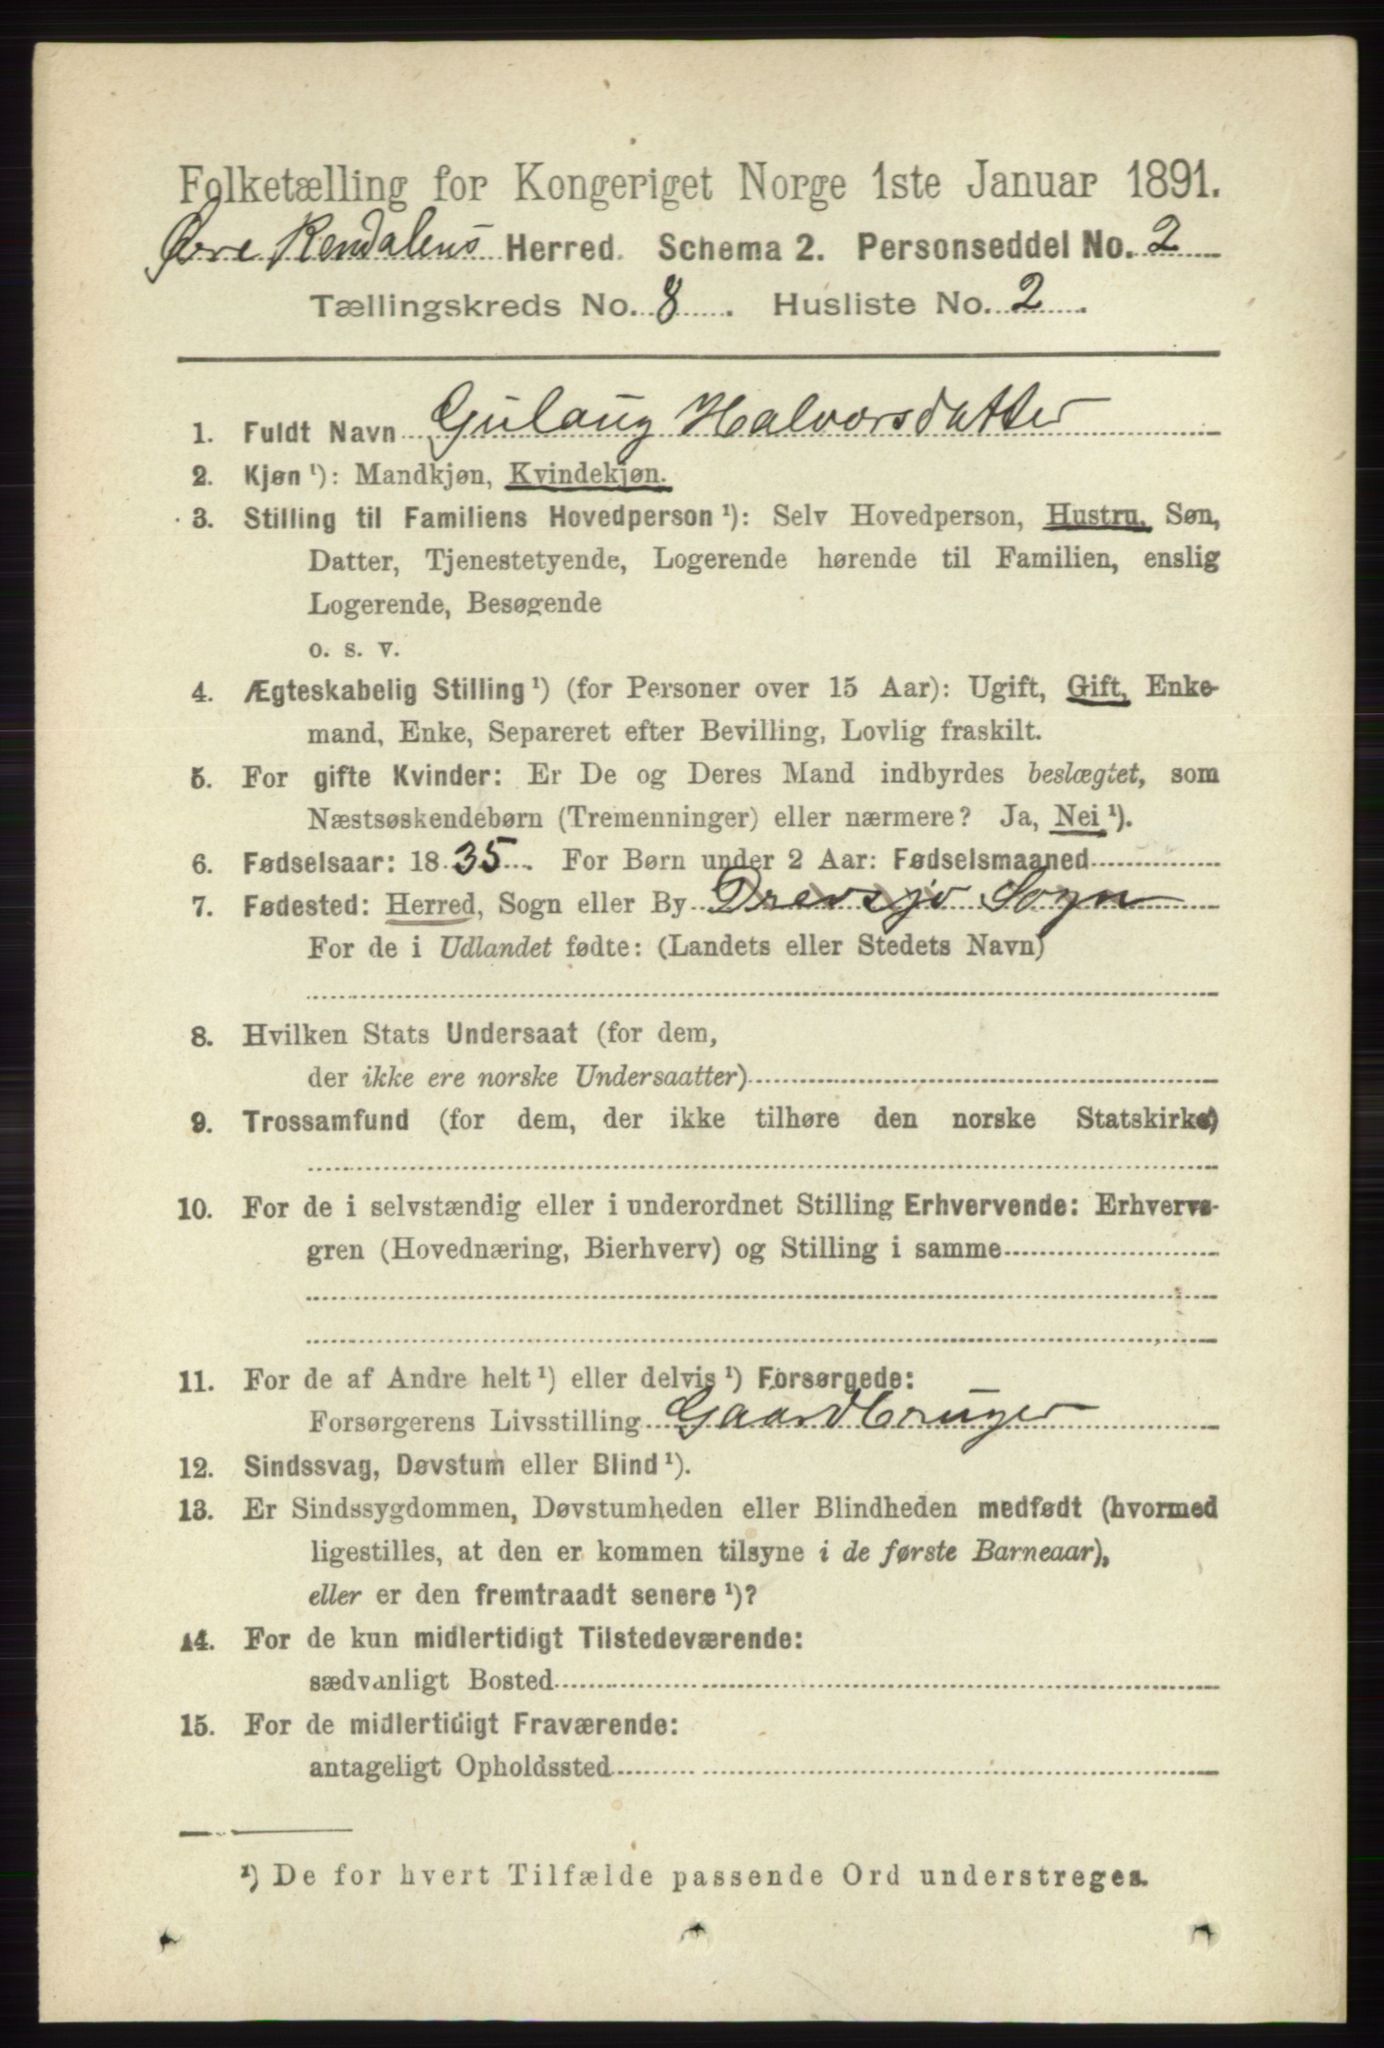 Folketælling for Kongeriget Norge 1ste Januar 1891.
Øvre Rendalens Herred. Schema 2. Personseddel No. 2
Tællingskreds No. 8. Husliste No. 2.
1. Fuldt Navn Gulaug Halvorsdatter
2. Kjøn ¹): Mandkjøn, Kvindekjøn.
3. Stilling til Familiens Hovedperson ¹): Selv Hovedperson, Hustru, Søn,
Datter, Tjenestetyende, Logerende hørende til Familien, enslig
Logerende, Besøgende
o. s. v.
4. Ægteskabelig Stilling ¹) (for Personer over 15 Aar): Ugift, Gift, Enke-
mand, Enke, Separeret efter Bevilling, Lovlig fraskilt.
5. For gifte Kvinder: Er De og Deres Mand indbyrdes beslægtet, som
Næstsøskendebørn (Tremenninger) eller nærmere? Ja, Nei ¹).
6. Fødselsaar: 1835. For Børn under 2 Aar: Fødselsmaaned
7. Fødested: Herred, Sogn eller By Drevsjø Sogn
For de i Udlandet fødte: (Landets eller Stedets Navn)
8. Hvilken Stats Undersaat (for dem,
der ikke ere norske Undersaatter)
9. Trossamfund (for dem, der ikke tilhøre den norske Statskirke)
10. For de i selvstændig eller i underordnet Stilling Erhvervende: Erhvervs-
gren (Hovednæring, Bierhverv) og Stilling i samme
11. For de af Andre helt ¹) eller delvis ¹) Forsørgede:
Forsørgerens Livsstilling Gaardbruger
12. Sindssvag, Døvstum eller Blind ¹).
13. Er Sindssygdommen, Døvstumheden eller Blindheden medfødt (hvormed
ligestilles, at den er kommen tilsyne i de første Barneaar),
eller er den fremtraadt senere ¹)?
14. For de kun midlertidigt Tilstedeværende:
sædvanligt Bosted
15. For de midlertidigt Fraværende:
antageligt Opholdssted
¹) De for hvert Tilfælde passende Ord understreges.